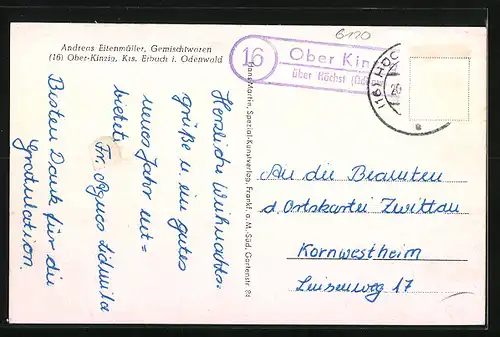 Andreas Eitenmüller, Gemischtwaren
(16) Ober-Kinzig, Krs. Erbach i. Odenwald
Herzliche Weihnachts-
grüße u. ein gutes
neues Jahr ent=
bietet
Fr. Agnes Lidmila
Besten Dank für die
Gratulation.
Hans Martin, Spezial-Kunstverlag, Frankf. a. M.-Süd, Gartenstr. 84
6120
16
Ober Kin
über Höchst (Od
(16) HÖC
20
a
An die Beamten
d. Ortskartei Zwittau
Kornwestheim
Luisenweg 17